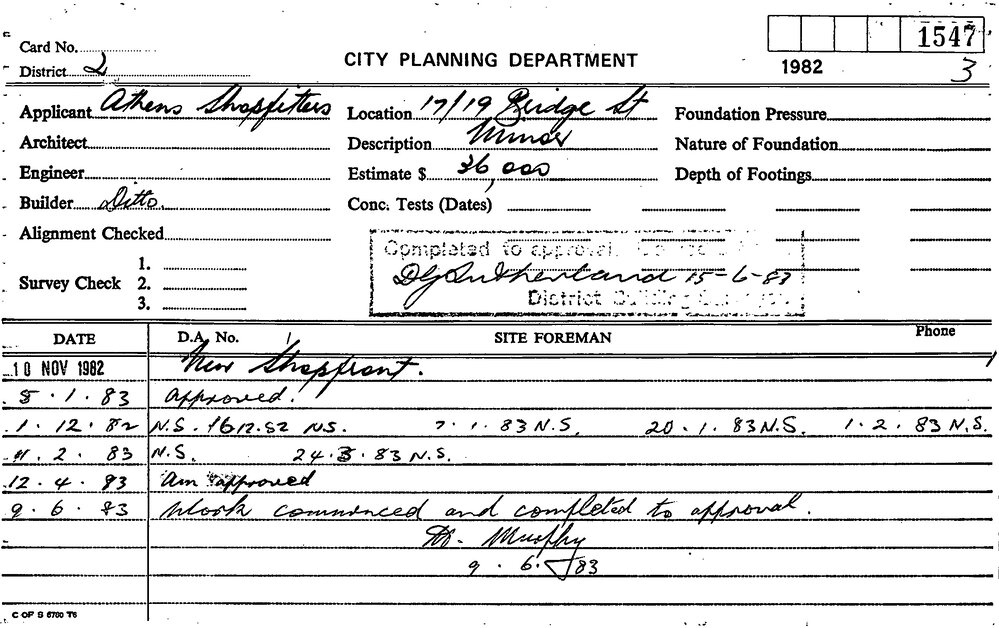 1547
Card No.
CITY PLANNING DEPARTMENT
1982
3
District 2
Applicant Athens Shopfitters
Location 17/19 Bridge St
Foundation Pressure
Architect
Description Minor
Nature of Foundation
Engineer
Estimate $ 36,000
Depth of Footings
Builder Ditto.
Conc. Tests (Dates)
Alignment Checked
Completed to approval.
Survey Check 1.
2.
3.
DG Sutherland 15-6-83
District Building
DATE D.A. No. SITE FOREMAN Phone
10 NOV 1982 New Shopfront.
5.1.83 Approved.
1.12.82 N.S. 16.12.82 N.S. 7.1.83 N.S. 20.1.83 N.S. 1.2.83 N.S.
11.2.83 N.S. 24.3.83 N.S.
12.4.83 Am approved
9.6.83 Work commenced and completed to approval.
Murphy
9.6.83
C OF S 6760 T6